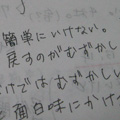 簡単にいけない。
戻すのがむずかし
けではむずかしい
面白味にかけ